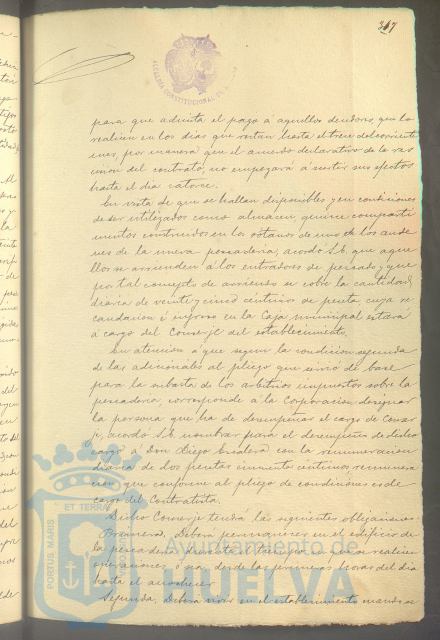 347
ALCALDIA CONSTITUCIONAL DE
para que admita el pago á aquellos deudores que lo
realicen en los dias que restan hasta el trece del corriente
mes, por manera que el acuerdo declarativo de la res
cision del contrato, no empezará á surtir sus efectos
hasta el dia catorce.
En vista de que se hallan disponibles y en condiciones
de ser utilizados como almacen, quince comparti
mentos construidos en los sótanos de uno de los ande
nes de la nueva pescaderia, acordó S.E. que aque
llos se arrienden á los entradores de pescado y que
por tal concepto de arriendo se cobre la cantidad
diaria de veinte y cinco centimos de peseta cuya re
caudacion é ingreso en la Caja municipal estará
á cargo del Conserje del establecimiento.
En atencion á que segun la condicion segunda
de las adicionales al pliego que sirvió de base
para la subasta de los arbitrios impuestos sobre la
pescaderia, corresponde á la Corporacion designar
la persona que ha de desempeñar el cargo de Conser
je, acordó S.E. nombrar para el desempeño de dicho
cargo á Don Diego con la remuneracion
diaria de dos pesetas cincuenta centimos, remunera
cion que conforme al pliego de condiciones es de
cargo del Contratista.
Dicho Conserje tendrá las siguientes obligaciones:
Primera, Deberá permanecer en el edificio de
la pescaderia durante el tiempo en que se realicen
operaciones ó sea desde las primeras horas del dia
hasta el anochecer.
Segunda, Deberá vivir en el establecimiento
PORTUS MARIS
ET TERRAE
Ayuntamiento de
HUELVA